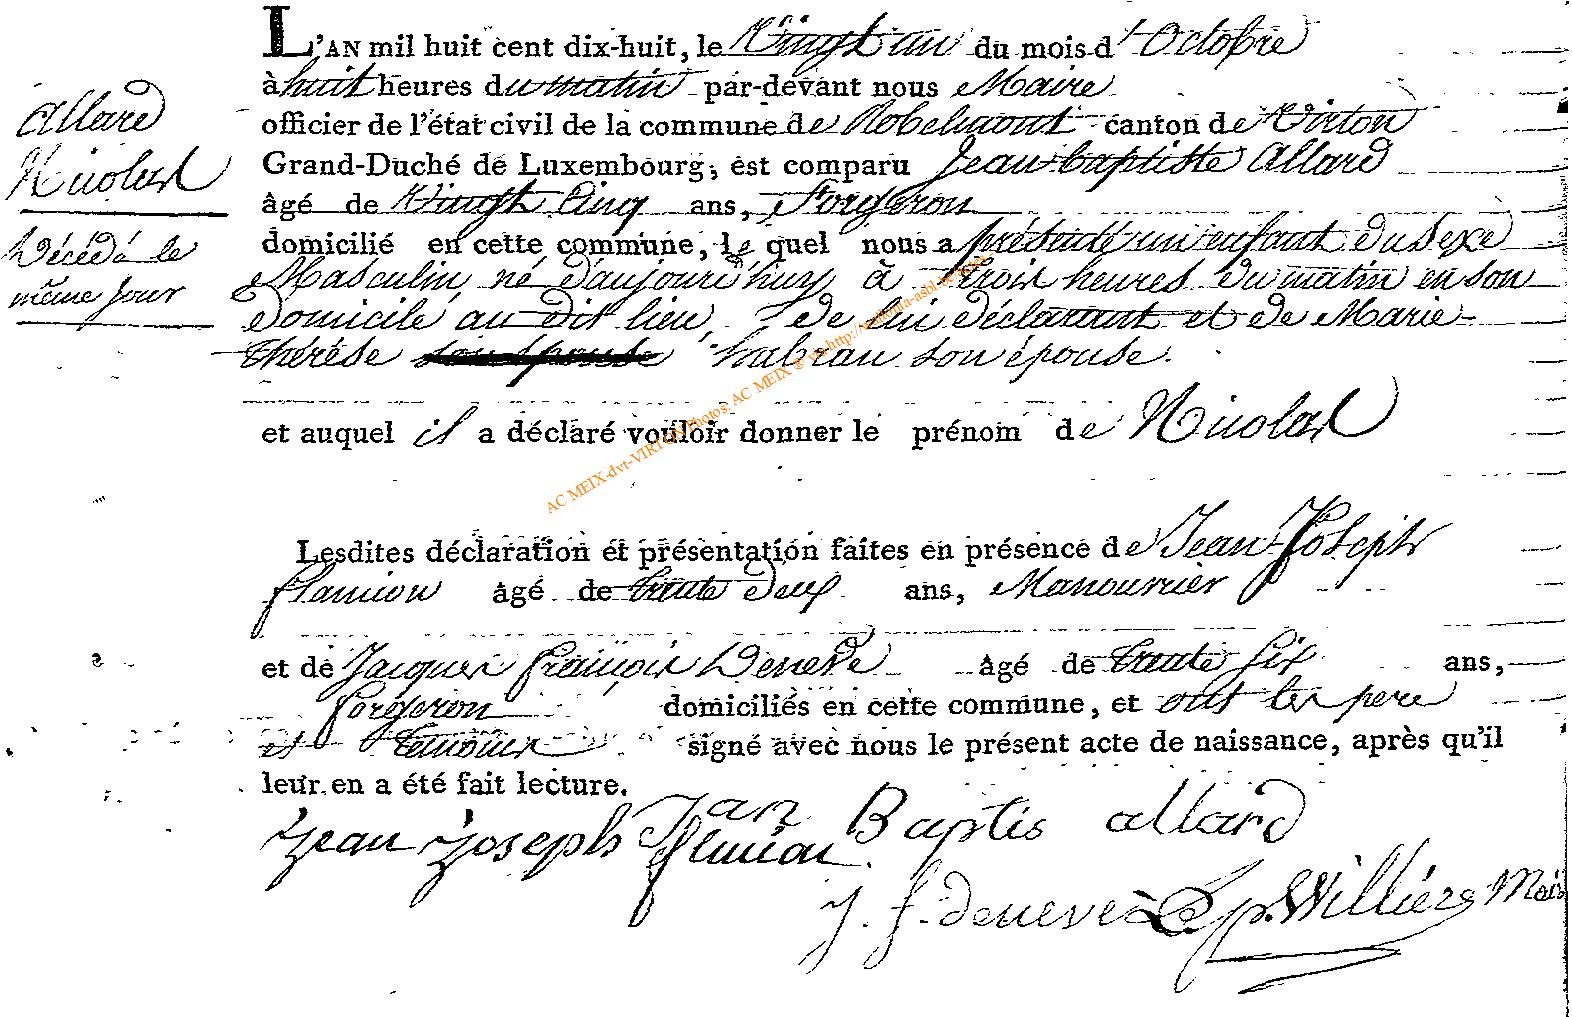 L'AN mil huit cent dix-huit, le Vingt un du mois d'Octobre
à huit heures du matin par-devant nous Maire
officier de l'état civil de la commune de Robelmont canton de Virton
Grand-Duché de Luxembourg, est comparu Jean-baptiste Allard
âgé de Vingt Cinq ans, Forgeron
domicilié en cette commune, le quel nous a présenté un enfant du Sexe
Masculin, né d'aujourd'huy à trois heures du matin en son
Domicile au dit lieu, de lui déclarant et de Marie
thérèse son épouse habran son épouse.
et auquel il a déclaré vouloir donner le prénom de Nicolas
Allard
Nicolas
Décédé le
même jour
Lesdites déclaration et présentation faites en présence de Jean-Joseph
flamion âgé de trente deux ans, Manouvrier
et de Jacques françois Deneve âgé de trente six ans,
forgeron domiciliés en cette commune, et ont les pere
et temoins signé avec nous le présent acte de naissance, après qu'il
leur en a été fait lecture.
Jean Baptis allard
Jean Joseph flamion
J. f. deneve
Willièrs Mair
AC MEIX-dvt-VIRTON Photos: AC MEIX